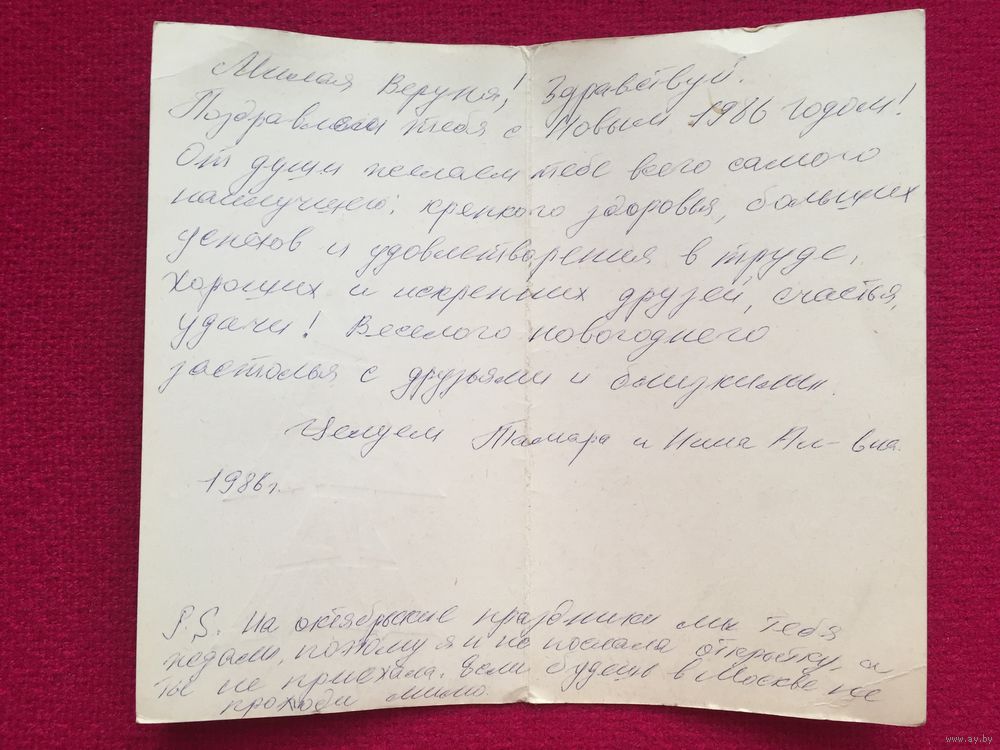 Милая Веруня! Здравствуй.
Поздравляем тебя с Новым 1986 годом!
От души желаем тебе всего самого
наилучшего: крепкого здоровья, больших
успехов и удовлетворения в труде,
хороших и искренних друзей, счастья,
удачи! Веселого новогоднего
застолья с друзьями и близкими.
Целуем Тамара и Нина Ал-вна.
1986г.
P.S. На октябрьские праздники мы тебя
ждали, потому я и не послала открытку, а
ты не приехала. Если будешь в Москве не
проходи мимо.
www.ay.by